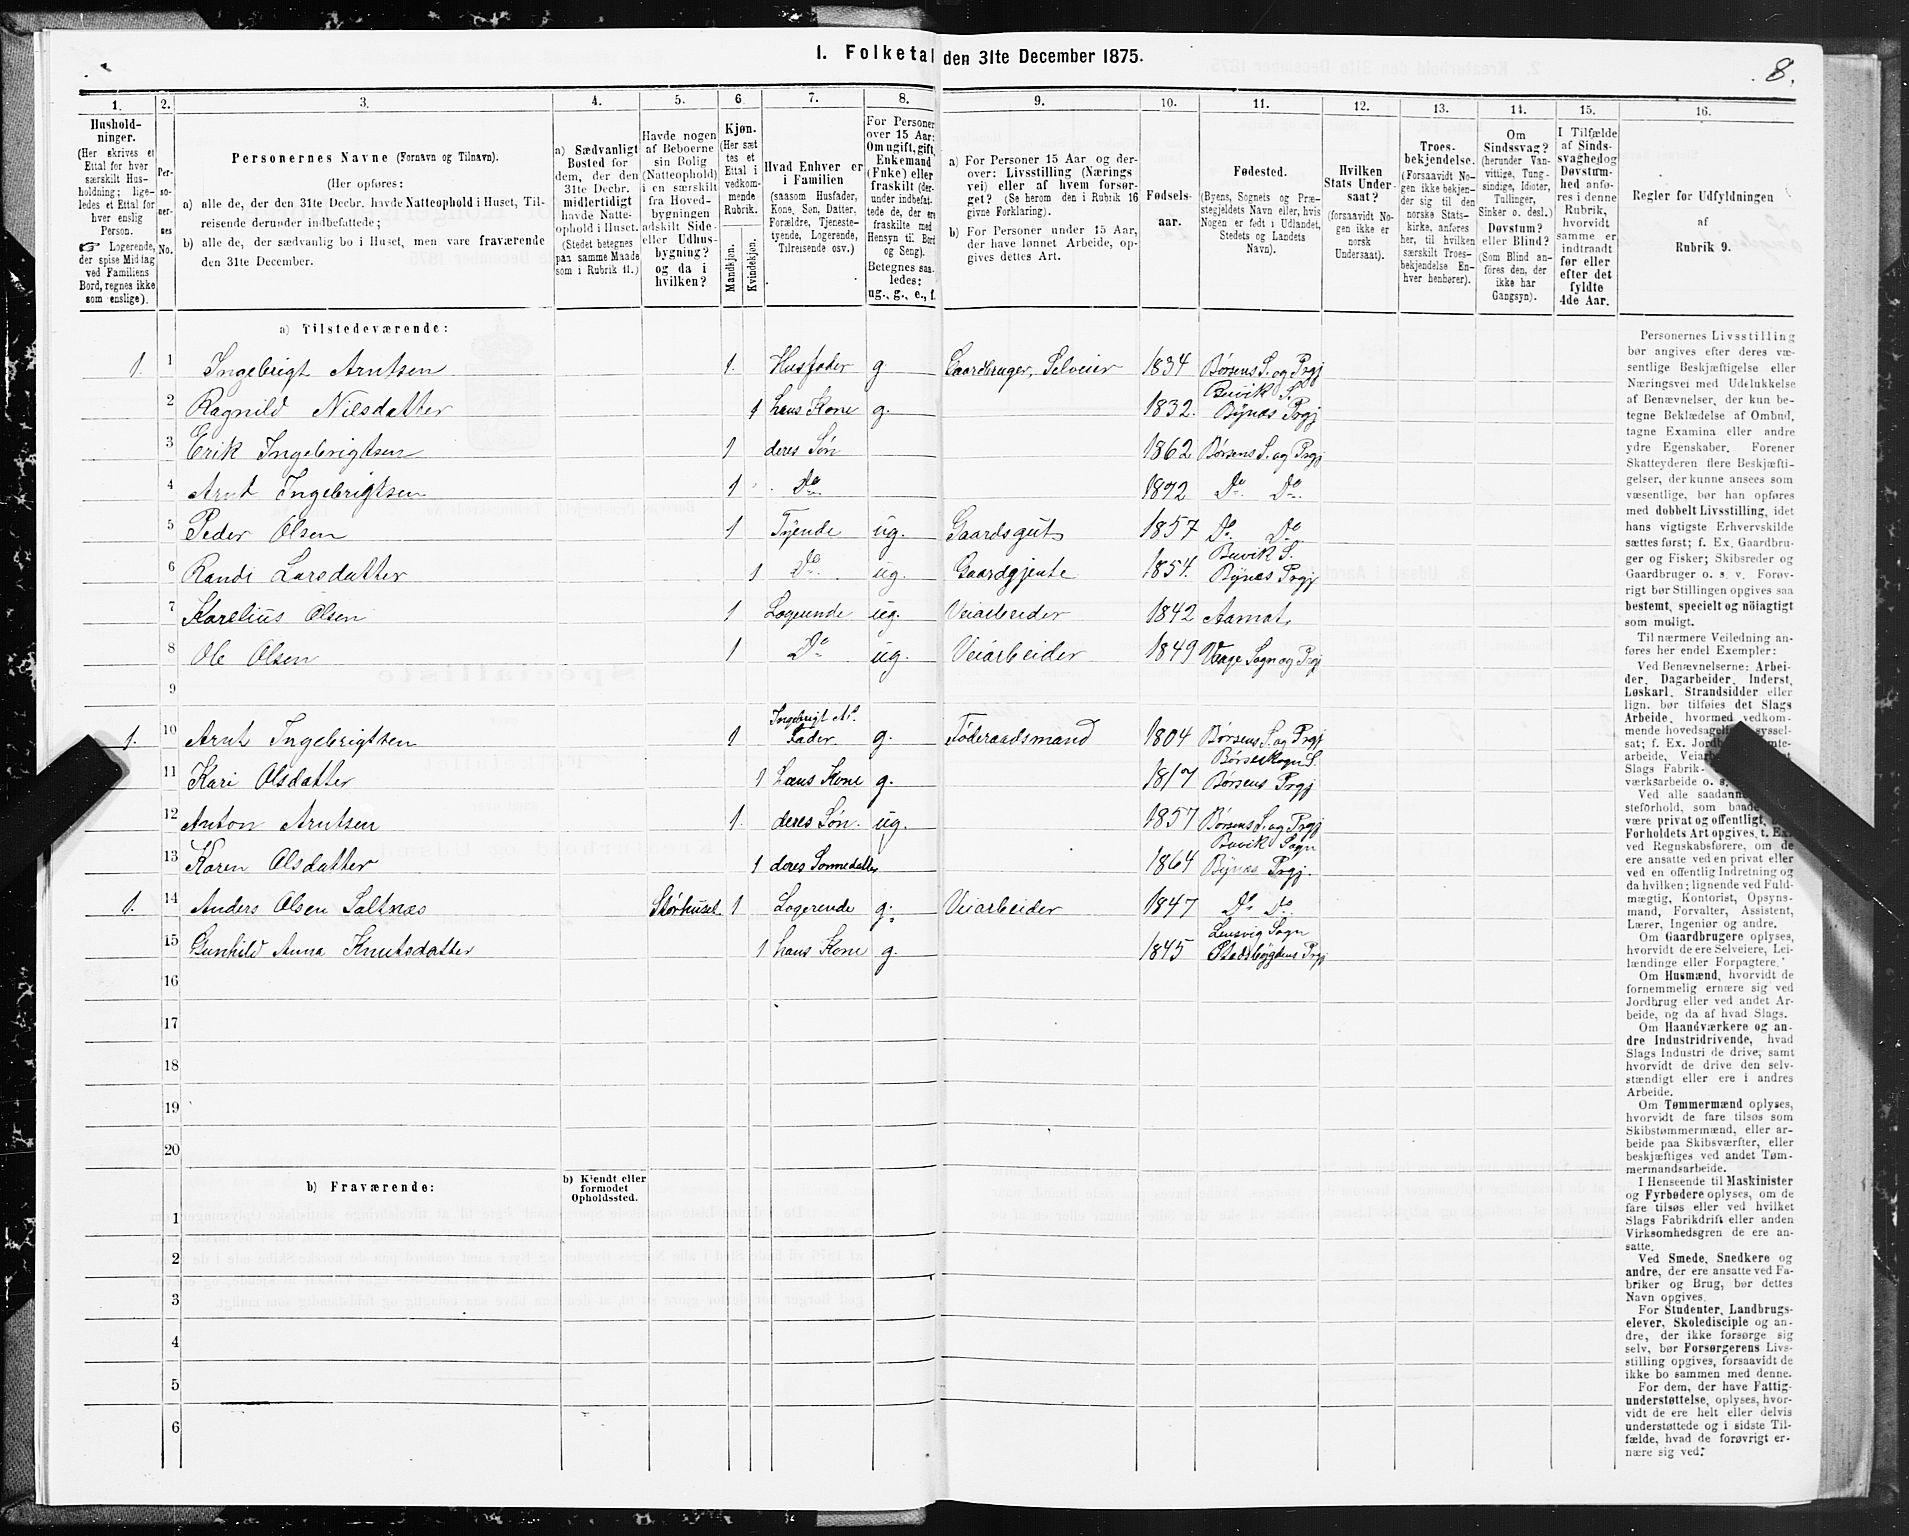 1. Folketal den 31te December 1875.
8.
1. 2. 3. 4. 5. 6 7. 8. 9. 10. 11. 12. 13. 14. 15. 16.
Hushold-
ninger.
(Her skrives et
Ettal for hver
særskilt Hus-
holdning; lige-
ledes et Ettal for
hver enslig
Person.
☞ Logerende,
der spise Middag
ved Familiens
Bord, regnes ikke
som enslige).
Per-
so-
ner-
nes
No.
Personernes Navne (Fornavn og Tilnavn).
(Her opføres:
a) alle de, der den 31te Decbr. havde Natteophold i Huset, Til-
reisende derunder indbefattede;
b) alle de, der sædvanlig bo i Huset, men vare fraværende
den 31te December.
a) Sædvanligt
Bosted for
dem, der den
31te Decbr.
midlertidigt
havde Natte-
ophold i Huset.
(Stedet betegnes
paa samme Maade
som i Rubrik 11.)
Havde nogen
af Beboerne
sin Bolig
(Natteophold)
i en særskilt
fra Hoved-
bygningen
adskilt Side-
eller Udhus-
bygning?
og da i
hvilken?
Kjøn.
(Her sæt
tes et
Ettal i
vedkom-
mende
Rubrik.
Mandkjøn.
Kvindekjøn.
Hvad Enhver er
i Familien
(saasom Husfader,
Kone, Søn, Datter,
Forældre, Tjeneste-
tyende, Logerende,
Tilreisende osv.)
For Personer
over 15 Aar:
Om ugift, gift,
Enkemand
(Enke) eller
fraskilt (der-
under indbefat-
tede de, der ere
fraskilte med
Hensyn til Bord
og Seng).
Betegnes saa-
ledes:
ug., g., e., f.
a) For Personer 15 Aar og der-
over: Livsstilling (Nærings
vei) eller af hvem forsør-
get? (Se herom den i Rubrik 16
givne Forklaring).
b) For Personer under 15 Aar,
der have lønnet Arbeide, op-
gives dettes Art.
Fødsels-
aar.
Fødested.
(Byens, Sognets og Præ-
stegjeldets Navn eller, hvis
Nogen er født i Udlandet,
Stedets og Landets
Navn).
Hvilken
Stats Under-
saat?
(forsaavidt No-
gen ikke er
norsk
Undersaat).
Troes-
bekjendelse.
(Forsaavidt No-
gen ikke bekjen-
der sig til den
norske Stats-
kirke, anføres
her, til hvilken
særskilt Troes-
bekjendelse En-
hver henhører).
Om
Sindssvag?
(herunder Van-
vittige, Tung-
sindige, Idioter,
Tullinger,
Sinker o. desl.)
Døvstum?
eller Blind?
(Som Blind an-
føres den, der
ikke har
Gangsyn).
I Tilfælde
af Sinds-
svaghed og
Døvstum-
hed anfø-
res i denne
Rubrik,
hvorvidt
samme er
indtraadt
før eller
efter det
fyldte
4de Aar.
Regler for Udfyldningen
af
Rubrik 9.
a) Tilstedeværende:
1. 1 Ingebrigt Arntsen 1. Husfader g Gaardbruger, Selveier 1834 Børsens S. og Prgj
2 Ragnild Nilsdatter 1 hans Kone g. 1832. Buvik S. Bynæs Prgj
3 Erik Ingebrigtsen 1 deres Søn 1862 Børsens S. og Prgj
4 Arnt Ingebrigtsen 1 Do 1872 Do Do
5 Peder Olsen 1 Tyende ug. Gaardsgut 1857 Do Do
6 Randi Larsdatter 1 Do ug. Gaardgjente 1854. Buvik S. Bynæs Prgj
7 Karelius Olsen 1 Logerende ug. Veiarbeider 1842 Aamot
8 Ole Olsen 1 Do ug. Veiarbeider 1849 Vaage Sogn og Prgj
9
1. 10 Arnt Ingebrigtsen 1 Ingebrigt A's. Fader. g. Føderaadsmand 1804 Børsens S. og Prgj
11 Kari Olsdatter 1 hans Kone g. 1817 Børseskogn S. Børsens Prgj
12 Anton Arntsen 1. deres Søn. ug. 1857 Børsens S. og Prgj
13 Karen Olsdatter 1 deres Sønnedatter 1864 Buvik Sogn Bynæs Prgj.
1. 14 Anders Olsen Saltnæs Størhuset. 1 Logerende g. Veiarbeider 1847 Do Do
15 Gunhild Anna Knutsdatter 1 hans Kone g. 1845 Lensvig Sogn Stadsbygdens Prgj
16
17
18
19
20
b) Fraværende:
b) Kjendt eller
formodet
Opholdssted.
1
2
3
4
5
6
Personernes Livsstilling
bør angives efter deres væ-
sentlige Beskjæftigelse eller
Næringsvei med Udelukkelse
af Benævnelser, der kun be-
tegne Beklædelse af Ombud,
tagne Examina eller andre
ydre Egenskaber. Forener
Skatteyderen flere Beskjæfti-
gelser, der kunne ansees som
væsentlige, bør han opføres
med dobbelt Livsstilling, idet
hans vigtigste Erhvervskilde
sættes først; f. Ex. Gaardbru-
ger og Fisker; Skibsreder og
Gaardbruger o. s. v. Forøv-
rigt bør Stillingen opgives saa
bestemt, specielt og nøiagtigt
som muligt.
Til nærmere Veiledning an-
føres her endel Exempler:
Ved Benævnelserne: Arbei-
der, Dagarbeider, Inderst,
Løskarl, Strandsidder eller
lign. bør tilføies det Slags
Arbeide, hvormed vedkom-
mende hovedsagelig sysselsat;
f. Ex.
arbeide,
Slags Fabrik-
værksarbeide o. s.
Ved alle saadanne
steforhold, som baade
være privat og offentligt,
Forholdets Art opgives, t. Ex.
ved Regnskabsførere, om de
ere ansatte ved en privat eller
ved en offentlig Indretning og
da hvilken; lignende ved Fuld-
mægtig, Kontorist, Opsyns-
mand, Forvalter, Assistent,
Lærer, Ingeniør og andre.
Om Gaardbrugere oplyses,
hvorvidt de ere Selveiere, Lei-
lændinge eller Forpagtere.
Om Husmænd, hvorvidt de
fornemmelig ernære sig ved
Jordbrug eller ved andet Ar-
beide, og da af hvad Slags.
Om Haandværkere og an-
dre Industridrivende, hvad
Slags Industri de drive, samt
hvorvidt de drive den selv-
stændigt eller ere i andres
Arbeide.
Om Tømmermænd oplyses,
hvorvidt de fare tilsøs som
Skibstømmermænd, eller ar-
beide paa Skibsværfter, eller
beskjæftiges ved andet Tøm-
mermandsarbeide.
I Henseende til Maskinister
og Fyrbødere oplyses, om de
fare tilsøs eller ved hvilket
Slags Fabrikdrift eller anden
Virksomhedsgren de ere an-
satte.
Ved Smede, Snedkere og
andre, der ere ansatte ved Fa-
briker og Brug, bør dettes
Navn opgives.
For Studenter, Landbrugs-
elever, Skoledisciple og an-
dre, der ikke forsørge sig
selv, bør Forsørgerens Livs-
stilling opgives, forsaavidt de
ikke bo sammen med denne.
For dem, der have Fattig-
understøttelse, oplyses, hvor-
vidt de ere helt eller delvis
understøttede og i sidste Til-
fælde, hvad de forøvrigt er-
nære sig ved.